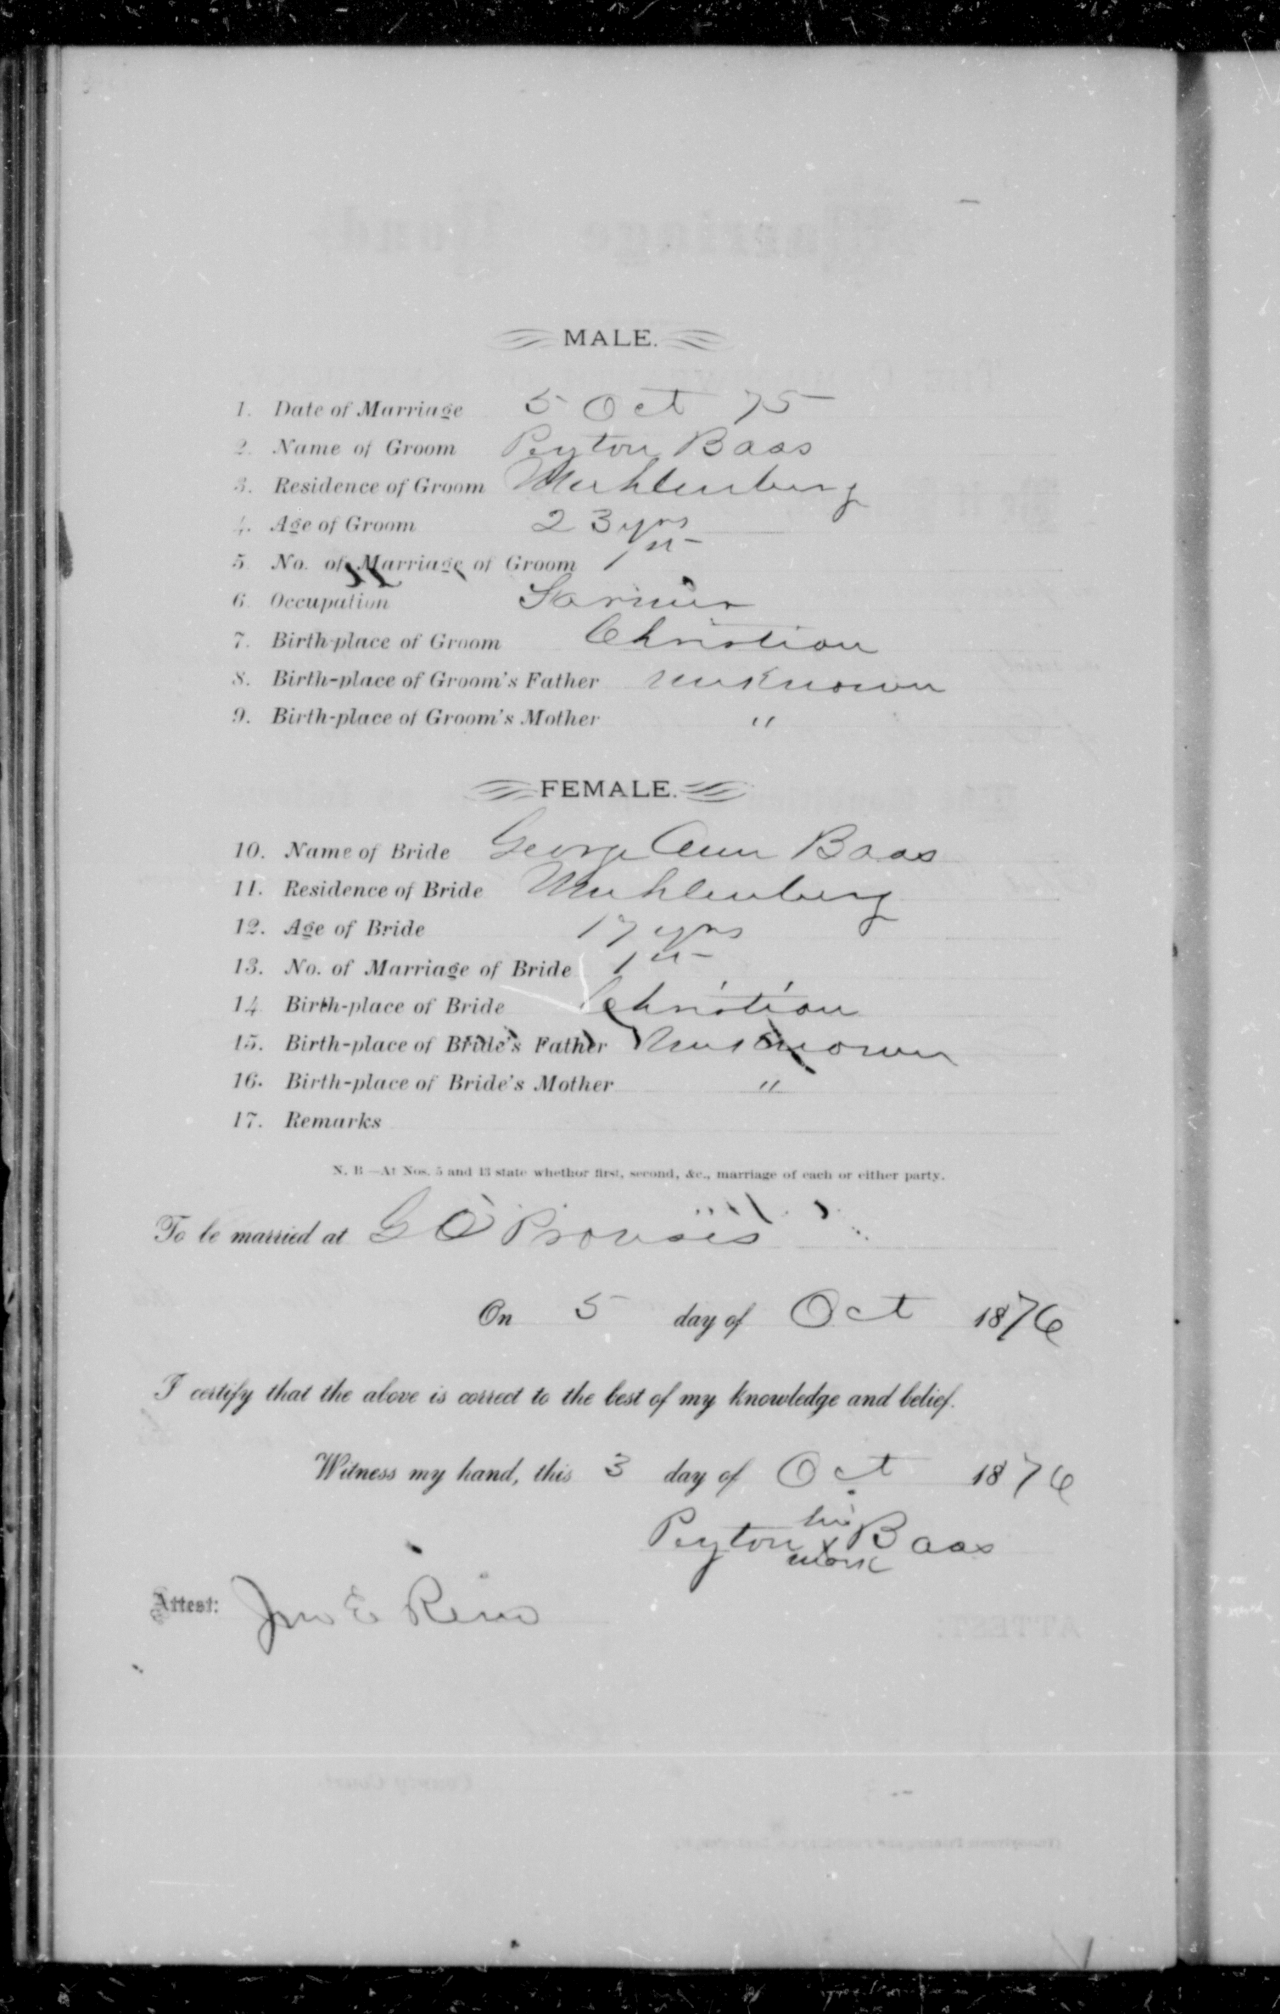 MALE.
1. Date of Marriage 5 Oct 75
2. Name of Groom Peyton Baas
3. Residence of Groom Muhlenberg
4. Age of Groom 23 yrs
5. No. of Marriage of Groom 1st
6. Occupation Farmer
7. Birth-place of Groom Christian
8. Birth-place of Groom's Father unknown
9. Birth-place of Groom's Mother "
FEMALE.
10. Name of Bride George Ann Baas
11. Residence of Bride Muhlenberg
12. Age of Bride 17 yrs
13. No. of Marriage of Bride 1st
14. Birth-place of Bride Christian
15. Birth-place of Bride's Father Unknown
16. Birth-place of Bride's Mother "
17. Remarks
N. B—At Nos. 5 and 13 state whether first, second, &c., marriage of each or either party.
To be married at G O
On 5 day of Oct 1876
I certify that the above is correct to the best of my knowledge and belief.
Witness my hand, this 3 day of Oct 1876
Peyton his x mark Baas
Attest: Jno E Reno